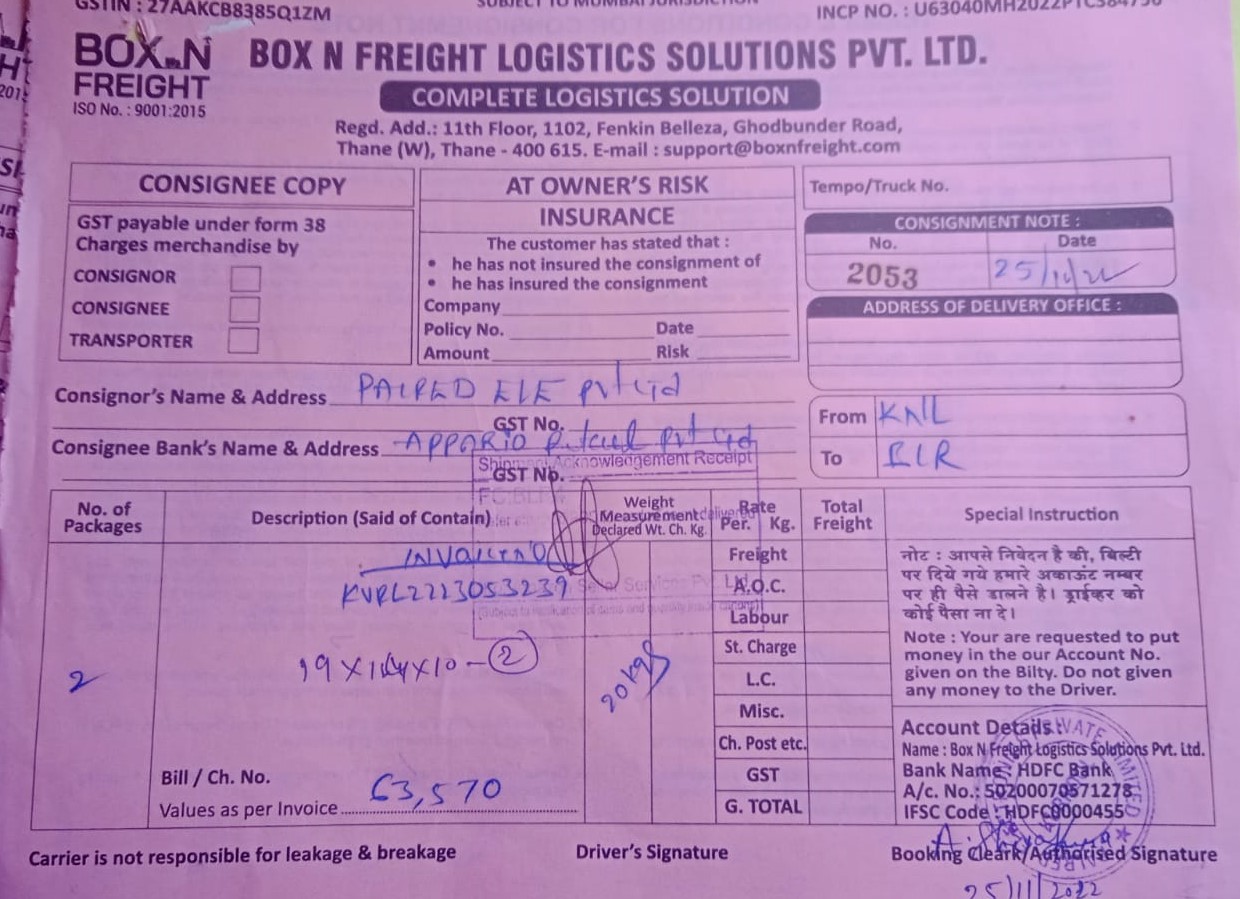 GSTIN : 27AAKCB8385Q1ZM
SUBJECT TO MUMBAI JURISDICTION
INCP NO. : U63040MH2022PTC384750
BOX N FREIGHT
ISO No. : 9001:2015
BOX N FREIGHT LOGISTICS SOLUTIONS PVT. LTD.
COMPLETE LOGISTICS SOLUTION
Regd. Add.: 11th Floor, 1102, Fenkin Belleza, Ghodbunder Road,
Thane (W), Thane - 400 615. E-mail : support@boxnfreight.com
CONSIGNEE COPY
GST payable under form 38
Charges merchandise by
CONSIGNOR
CONSIGNEE
TRANSPORTER
AT OWNER'S RISK
INSURANCE
The customer has stated that :
• he has not insured the consignment of
• he has insured the consignment
Company
Policy No. Date
Amount Risk
Tempo/Truck No.
CONSIGNMENT NOTE :
No. Date
2053 25/11/22
ADDRESS OF DELIVERY OFFICE :
Consignor's Name & Address PALRED ELE Pvt Ltd
GST No.
Consignee Bank's Name & Address APPARIO Retail Pvt Ltd
GST No.
Shipment Acknowledgement Receipt
From KNL
To BLR
No. of Packages
Description (Said of Contain)
Weight Measurement
Declared Wt. Ch. Kg.
Rate
Per. Kg.
Total Freight
Special Instruction
INVOICE NO
KVRL2223053239
19 X 14 X 10 - 2
2
20 kgs
Freight
A.O.C.
Labour
St. Charge
L.C.
Misc.
Ch. Post etc.
GST
G. TOTAL
Bill / Ch. No.
Values as per Invoice 63,570
नोट : आपसे निवेदन है की, बिल्टी
पर दिये गये हमारे अकाऊंट नम्बर
पर ही पैसे डालने है। ड्राईव्हर को
कोई पैसा ना दे।
Note : Your are requested to put
money in the our Account No.
given on the Bilty. Do not given
any money to the Driver.
Account Details :
Name : Box N Freight Logistics Solutions Pvt. Ltd.
Bank Name : HDFC Bank
A/c. No.: 50200070571278
IFSC Code : HDFC0000455
Carrier is not responsible for leakage & breakage
Driver's Signature
Booking Cleark/Authorised Signature
25/11/2022